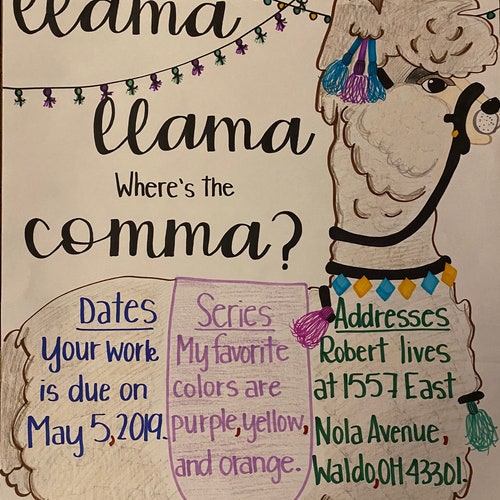 llama
llama
Where's the
comma?
Dates
Your work
is due on
May 5, 2019.
Series
My favorite
colors are
purple, yellow,
and orange.
Addresses
Robert lives
at 1557 East
Nola Avenue,
Waldo, OH 43301.